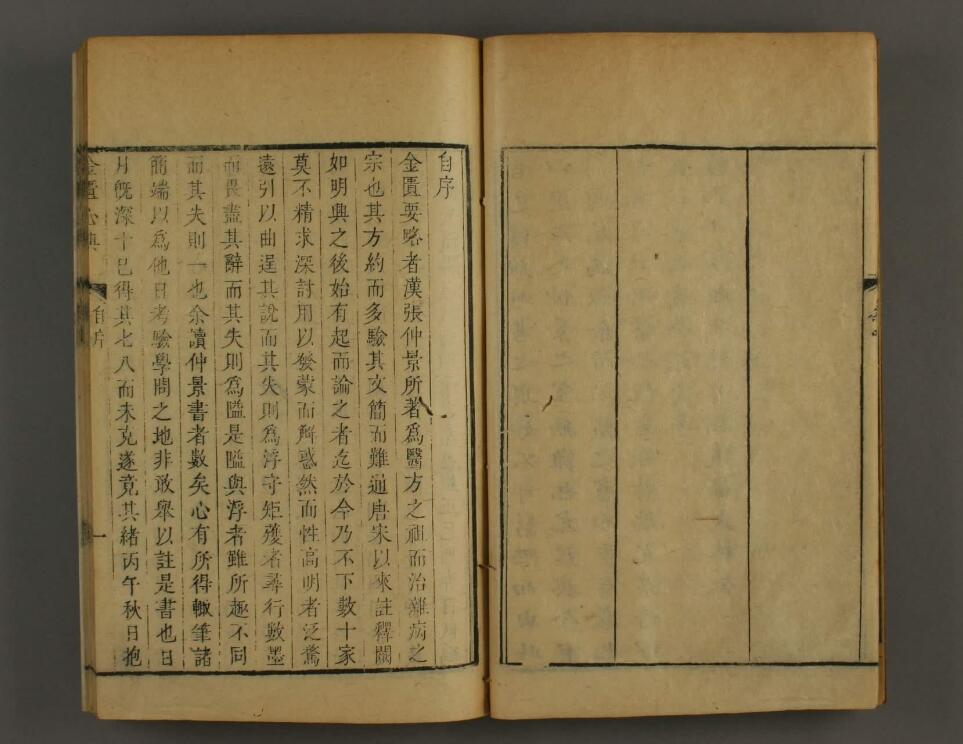 自序
金匱要略者漢張仲景所著爲醫方之祖而治雜病之
宗也其方約而多驗其文簡而難通唐宋以來註釋闕
如明興之後始有起而論之者迄於今乃不下數十家
莫不精求深討用以發蒙而解惑然而性高明者泛騖
遠引以曲逞其說而其失則爲浮守矩矱者尋行數墨
而畏盡其辭而其失則爲隘是隘與浮者雖所趣不同
而其失則一也余讀仲景書者數矣心有所得輙筆諸
簡端以爲他日考驗學問之地非敢舉以註是書也日
月旣深十已得其七八而未克遂竟其緒丙午秋日抱
金匱心典 自序 一